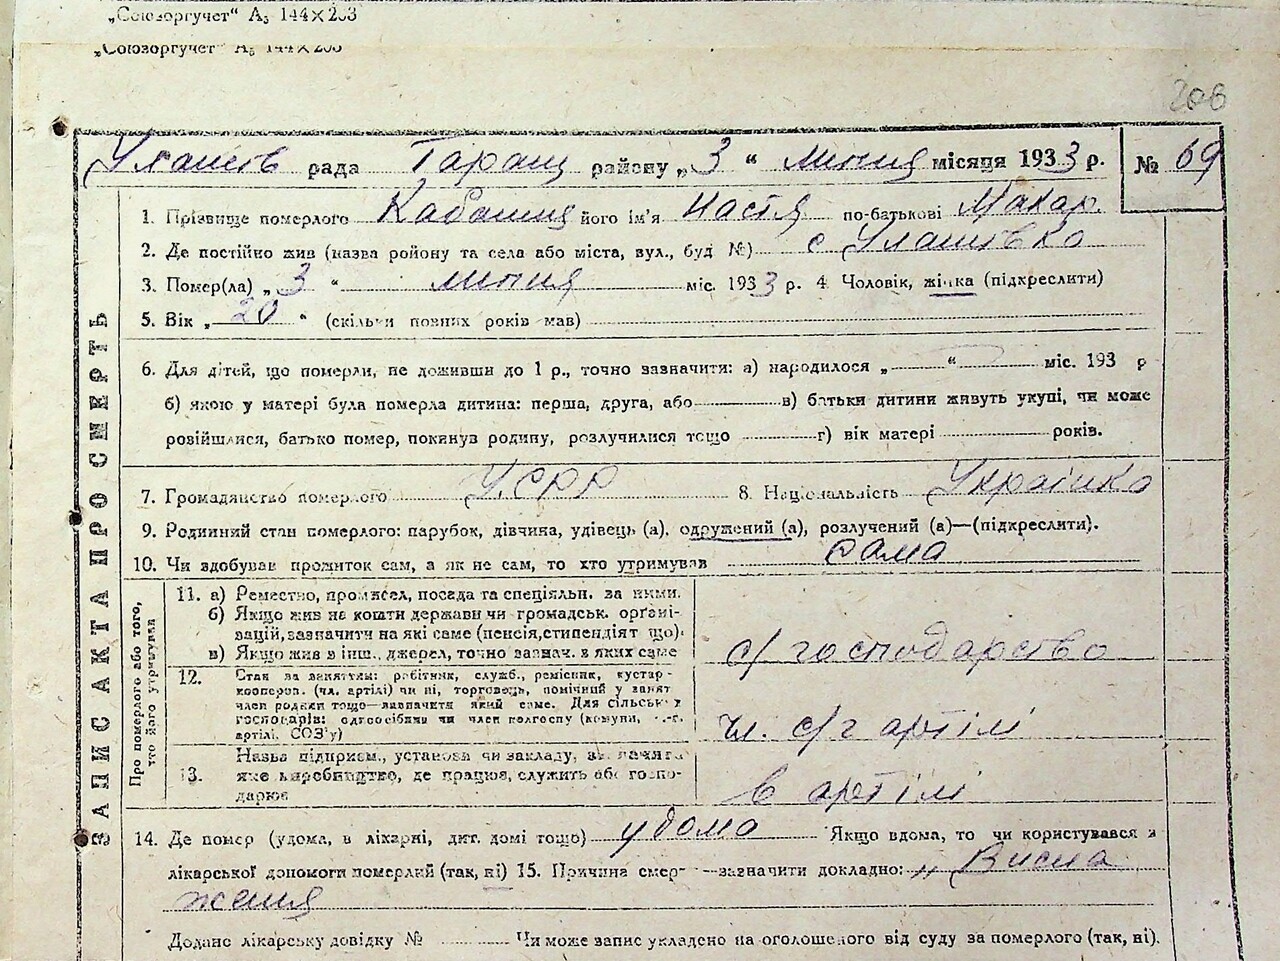 „Союзоргучет“ А5 144×203
„Союзоргучет“ А5 144×203
208
Улашів рада Таращ району „3“ липня місяця 1933 р. № 69
ЗАПИС АКТА ПРО СМЕРТЬ
1. Прізвище померлого його ім'я Настя по-батькові Макар.
2. Де постійно жив (назва району та села або міста, вул., буд №) с Улашівка
3. Помер(ла) „3“ липня міс. 1933 р. 4 Чоловік, жінка (підкреслити)
5. Вік „20“ (скільки повних років мав)
6. Для дітей, що померли, не доживши до 1 р., точно зазначити: а) народилося „ “ міс. 193 р
б) якою у матері була померла дитина: перша, друга, або в) батьки дитини живуть укупі, чи може
розійшлися, батько помер, покинув родину, розлучилися тощо г) вік матері років.
7. Громадянство померлого УСРР 8. Національність Українка
9. Родинний стан померлого: парубок, дівчина, удівець (а), одружений (а), розлучений (а)—(підкреслити).
10. Чи здобував прожиток сам, а як не сам, то хто утримував сама
Про померлого або того, хто його утримував
11. а) Ремество, промисел, посада та спеціяльн. за ними.
б) Якщо жив на кошти держави чи громадськ. орґані-
зацій, зазначити на які саме (пенсія, стипендіят що).
в) Якщо жив з інш. джерел, точно зазнач. з яких саме
с/господарство
12. Стан за заняттям: робітник, служб., ремісник, кустар-
кооперов. (чл. артілі) чи ні, торговець, помічний у занят
член родини тощо—зазначити який саме. Для сільськ х
господарів: одноосібник чи член колгоспу (комуни, с.-г.
артілі, СОЗ'у)
чл. с/г артілі
13. Назва підприєм., установи чи закладу, а
яке виробництво, де працює, служить або госпо-
дарює
в артілі
14. Де помер (удома, в лікарні, дит. домі тощо) удома Якщо вдома, то чи користувався з
лікарської допомоги померлий (так, ні) 15. Причина смер зазначити докладно: „Висна
ження
Додано лікарську довідку № Чи може запис укладено на оголошеного від суду за померлого (так, ні).